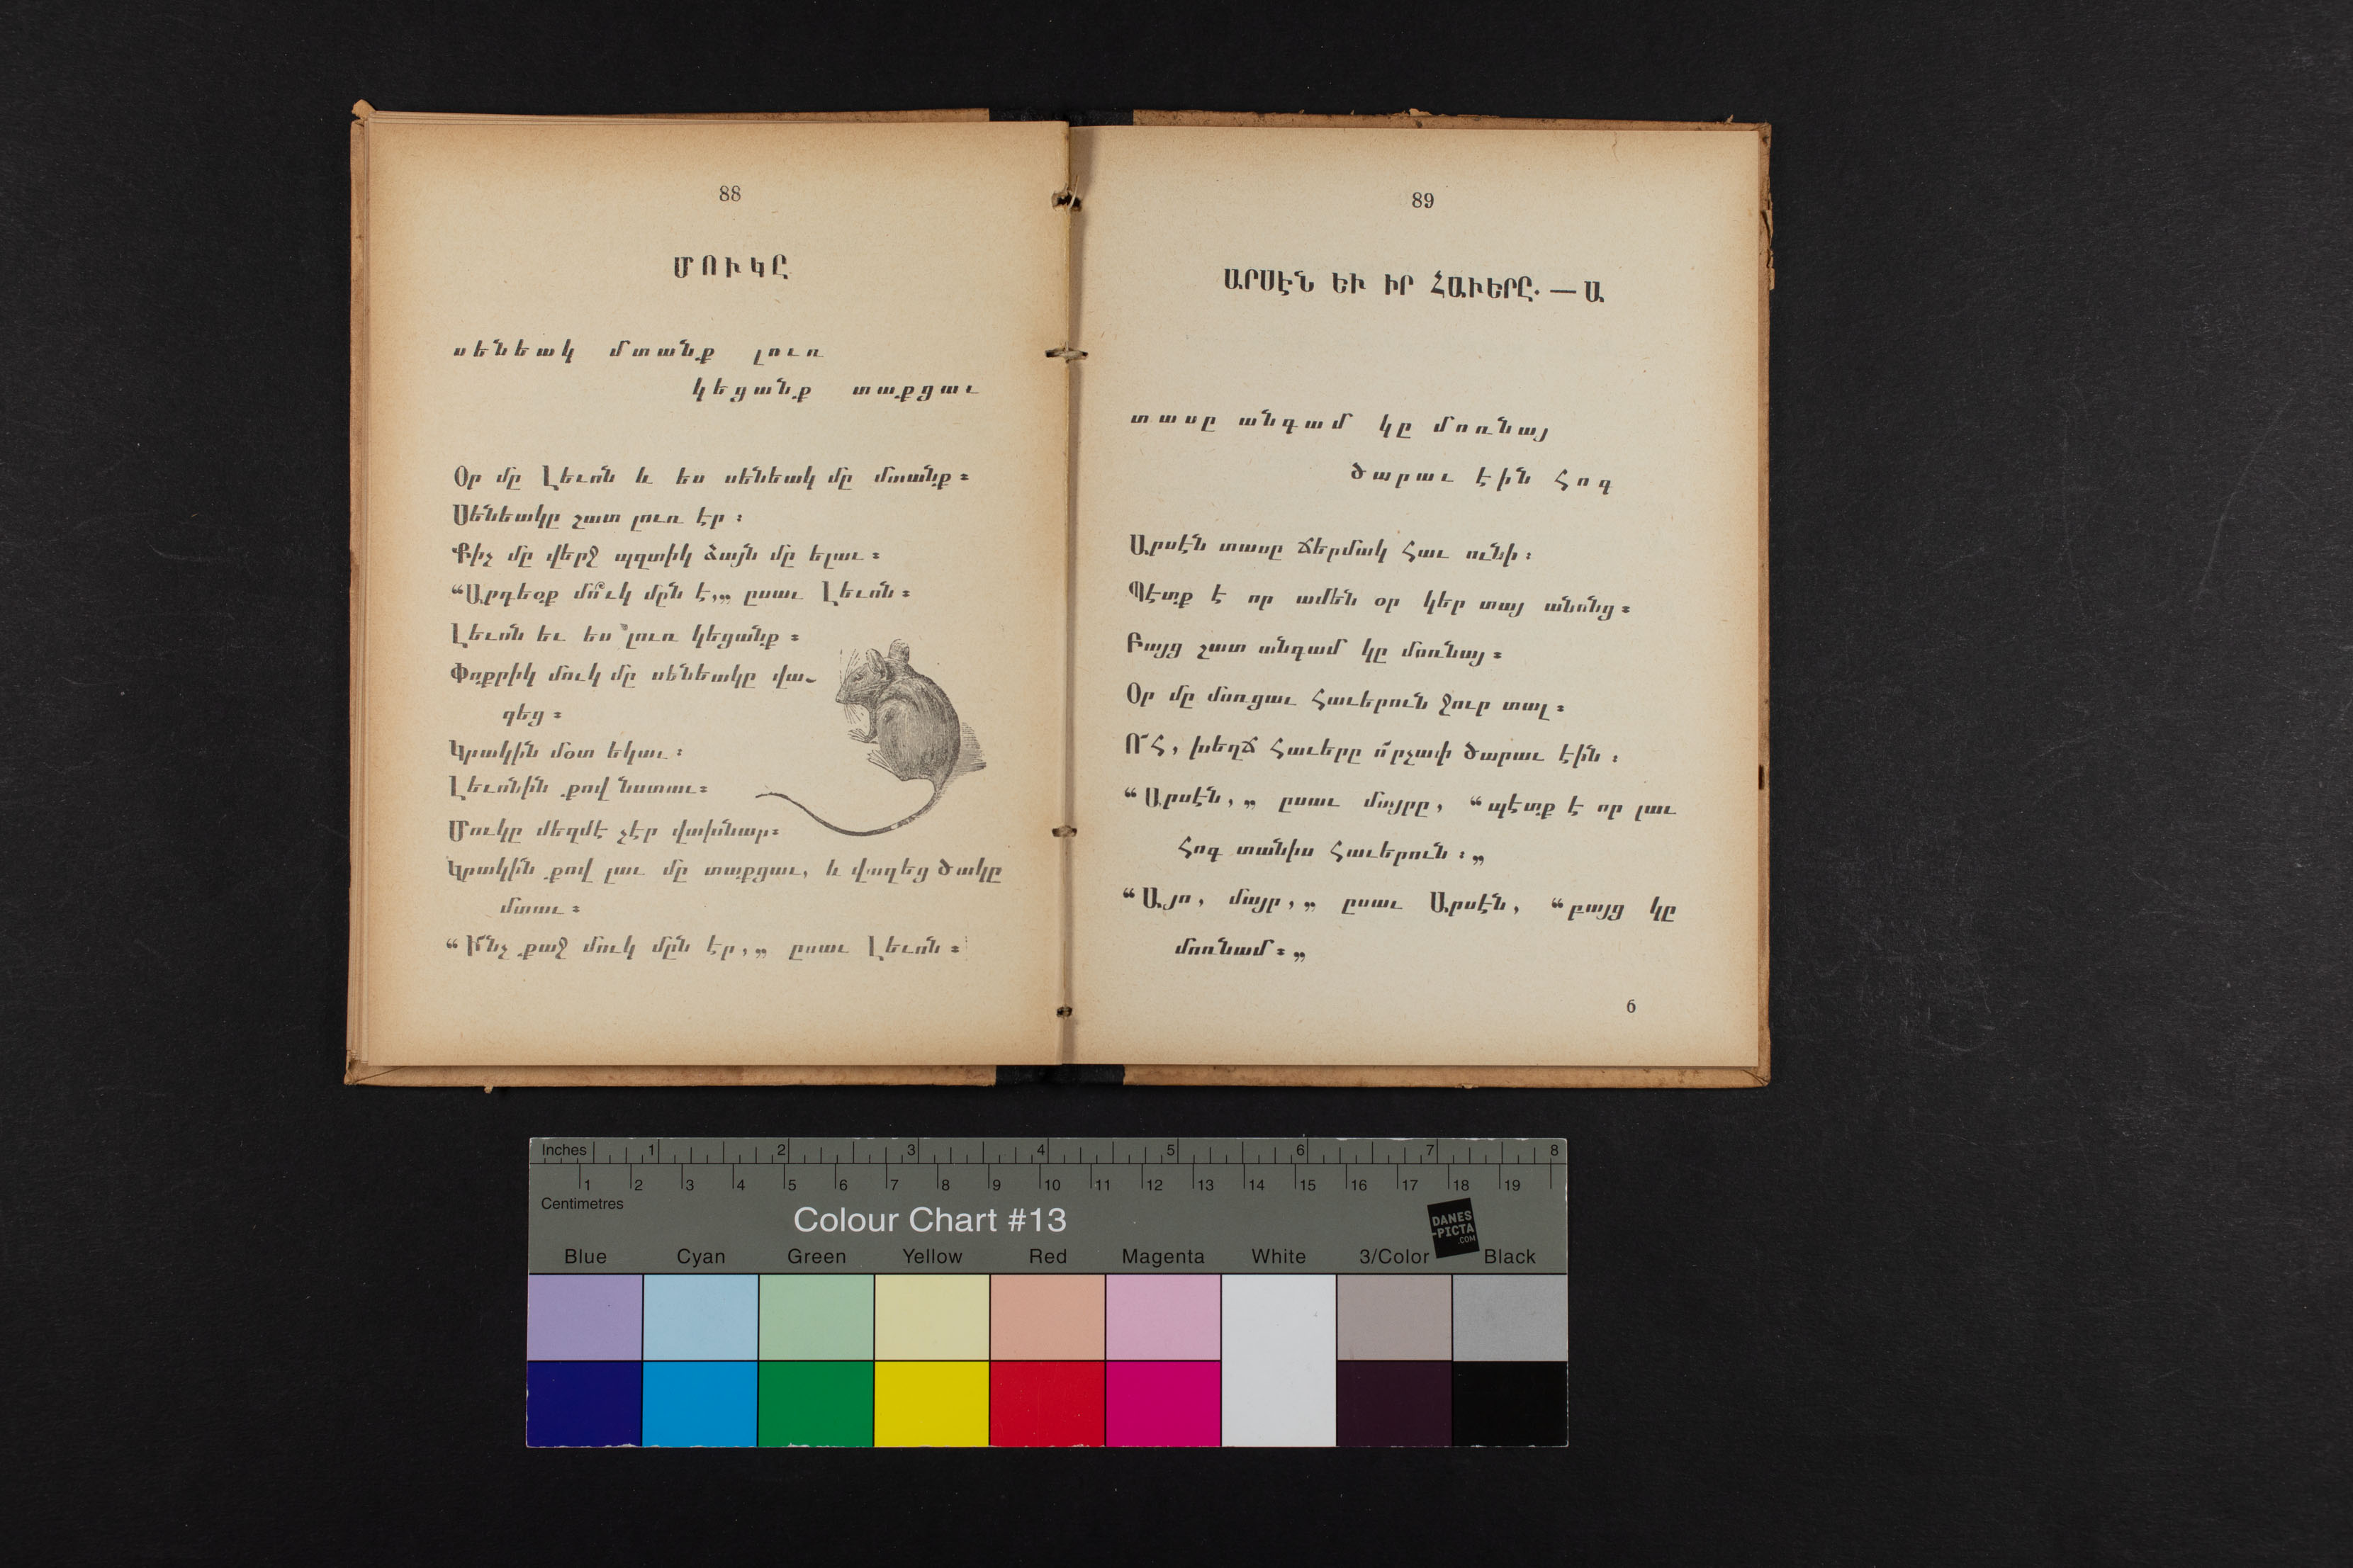 88
ՄՈՒԿԸ
սենեակ մտանք լուռ
կեցանք տաքցաւ
Օր մը Լեւոն և ես սենեակ մը մտանք։
Սենեակը շատ լուռ էր։
Քիչ մը վերջ պզտիկ ձայն մը ելաւ։
“Արդեօք մո՞ւկ մըն է,„ ըսաւ Լեւոն։
Լեւոն եւ ես լուռ կեցանք։
Փոքրիկ մուկ մը սենեակը վա-
զեց։
Կրակին մօտ եկաւ։
Լեւոնին քով նստաւ։
Մուկը մեզմէ չէր վախնար։
Կրակին քով լաւ մը տաքցաւ, և վազեց ծակը
մտաւ։
“Ի՜նչ քաջ մուկ մըն էր,„ ըսաւ Լեւոն։
89
ԱՐՍԷՆ ԵՒ ԻՐ ՀԱՒԵՐԸ.— Ա
տասը անգամ կը մոռնայ
ծարաւ էին հոգ
Արսէն տասը ճերմակ հաւ ունի։
Պէտք է որ ամեն օր կեր տայ անոնց։
Բայց շատ անգամ կը մոռնայ։
Օր մը մոռցաւ հաւերուն ջուր տալ։
Ո՜հ, խեղճ հաւերը ո՜րչափ ծարաւ էին։
“Արսէն,„ ըսաւ մայրը, “պէտք է որ լաւ
հոգ տանիս հաւերուն։„
“Այո, մայր,„ ըսաւ Արսէն, “բայց կը
մոռնամ։„
6
Inches 1 2 3 4 5 6 7 8
1 2 3 4 5 6 7 8 9 10 11 12 13 14 15 16 17 18 19
Centimetres
Colour Chart #13
DANES
-PICTA
.COM
Blue Cyan Green Yellow Red Magenta White 3/Color Black